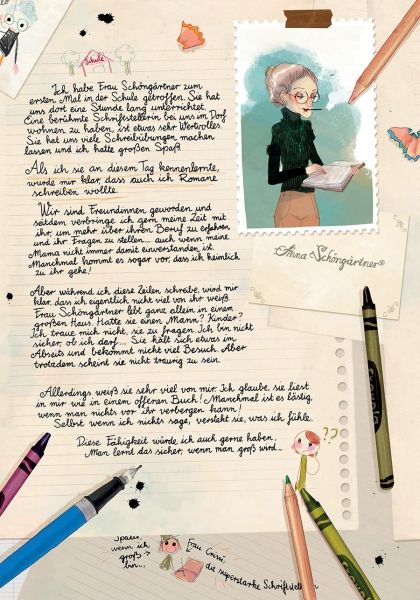 Schule
Ich habe Frau Schöngärtner zum
ersten Mal in der Schule getroffen. Sie hat
uns dort eine Stunde lang unterrichtet.
Eine berühmte Schriftstellerin bei uns im Dorf
wohnen zu haben, ist etwas sehr Wertvolles.
Sie hat uns viele Schreibübungen machen
lassen und ich hatte großen Spaß.
Als ich sie an diesem Tag kennenlernte,
wurde mir klar, dass auch ich Romane
schreiben wollte.
Wir sind Freundinnen geworden und
seitdem verbringe ich gern meine Zeit mit
ihr, um mehr über ihren Beruf zu erfahren
und ihr Fragen zu stellen... auch wenn meine
Mama nicht immer damit einverstanden ist.
Manchmal kommt es sogar vor, dass ich heimlich
zu ihr gehe!
Anna Schöngärtner
Aber während ich diese Zeilen schreibe, wird mir
klar, dass ich eigentlich nicht viel von ihr weiß.
Frau Schöngärtner lebt ganz allein in einem
großen Haus. Hatte sie einen Mann? Kinder?
Ich traue mich nicht, sie zu fragen. Ich bin nicht
sicher, ob ich darf... Sie hält sich etwas im
Abseits und bekommt nicht viel Besuch. Aber
trotzdem scheint sie nicht traurig zu sein.
Allerdings weiß sie sehr viel von mir. Ich glaube, sie liest
in mir wie in einem offenen Buch! Manchmal ist es lästig,
wenn man nichts vor ihr verbergen kann!
Selbst wenn ich nichts sage, versteht sie, was ich fühle.
Diese Fähigkeit würde ich auch gerne haben.
Man lernt das sicher, wenn man groß wird...
??
später,
wenn ich
groß
bin...
Frau Cerise,
die superstarke